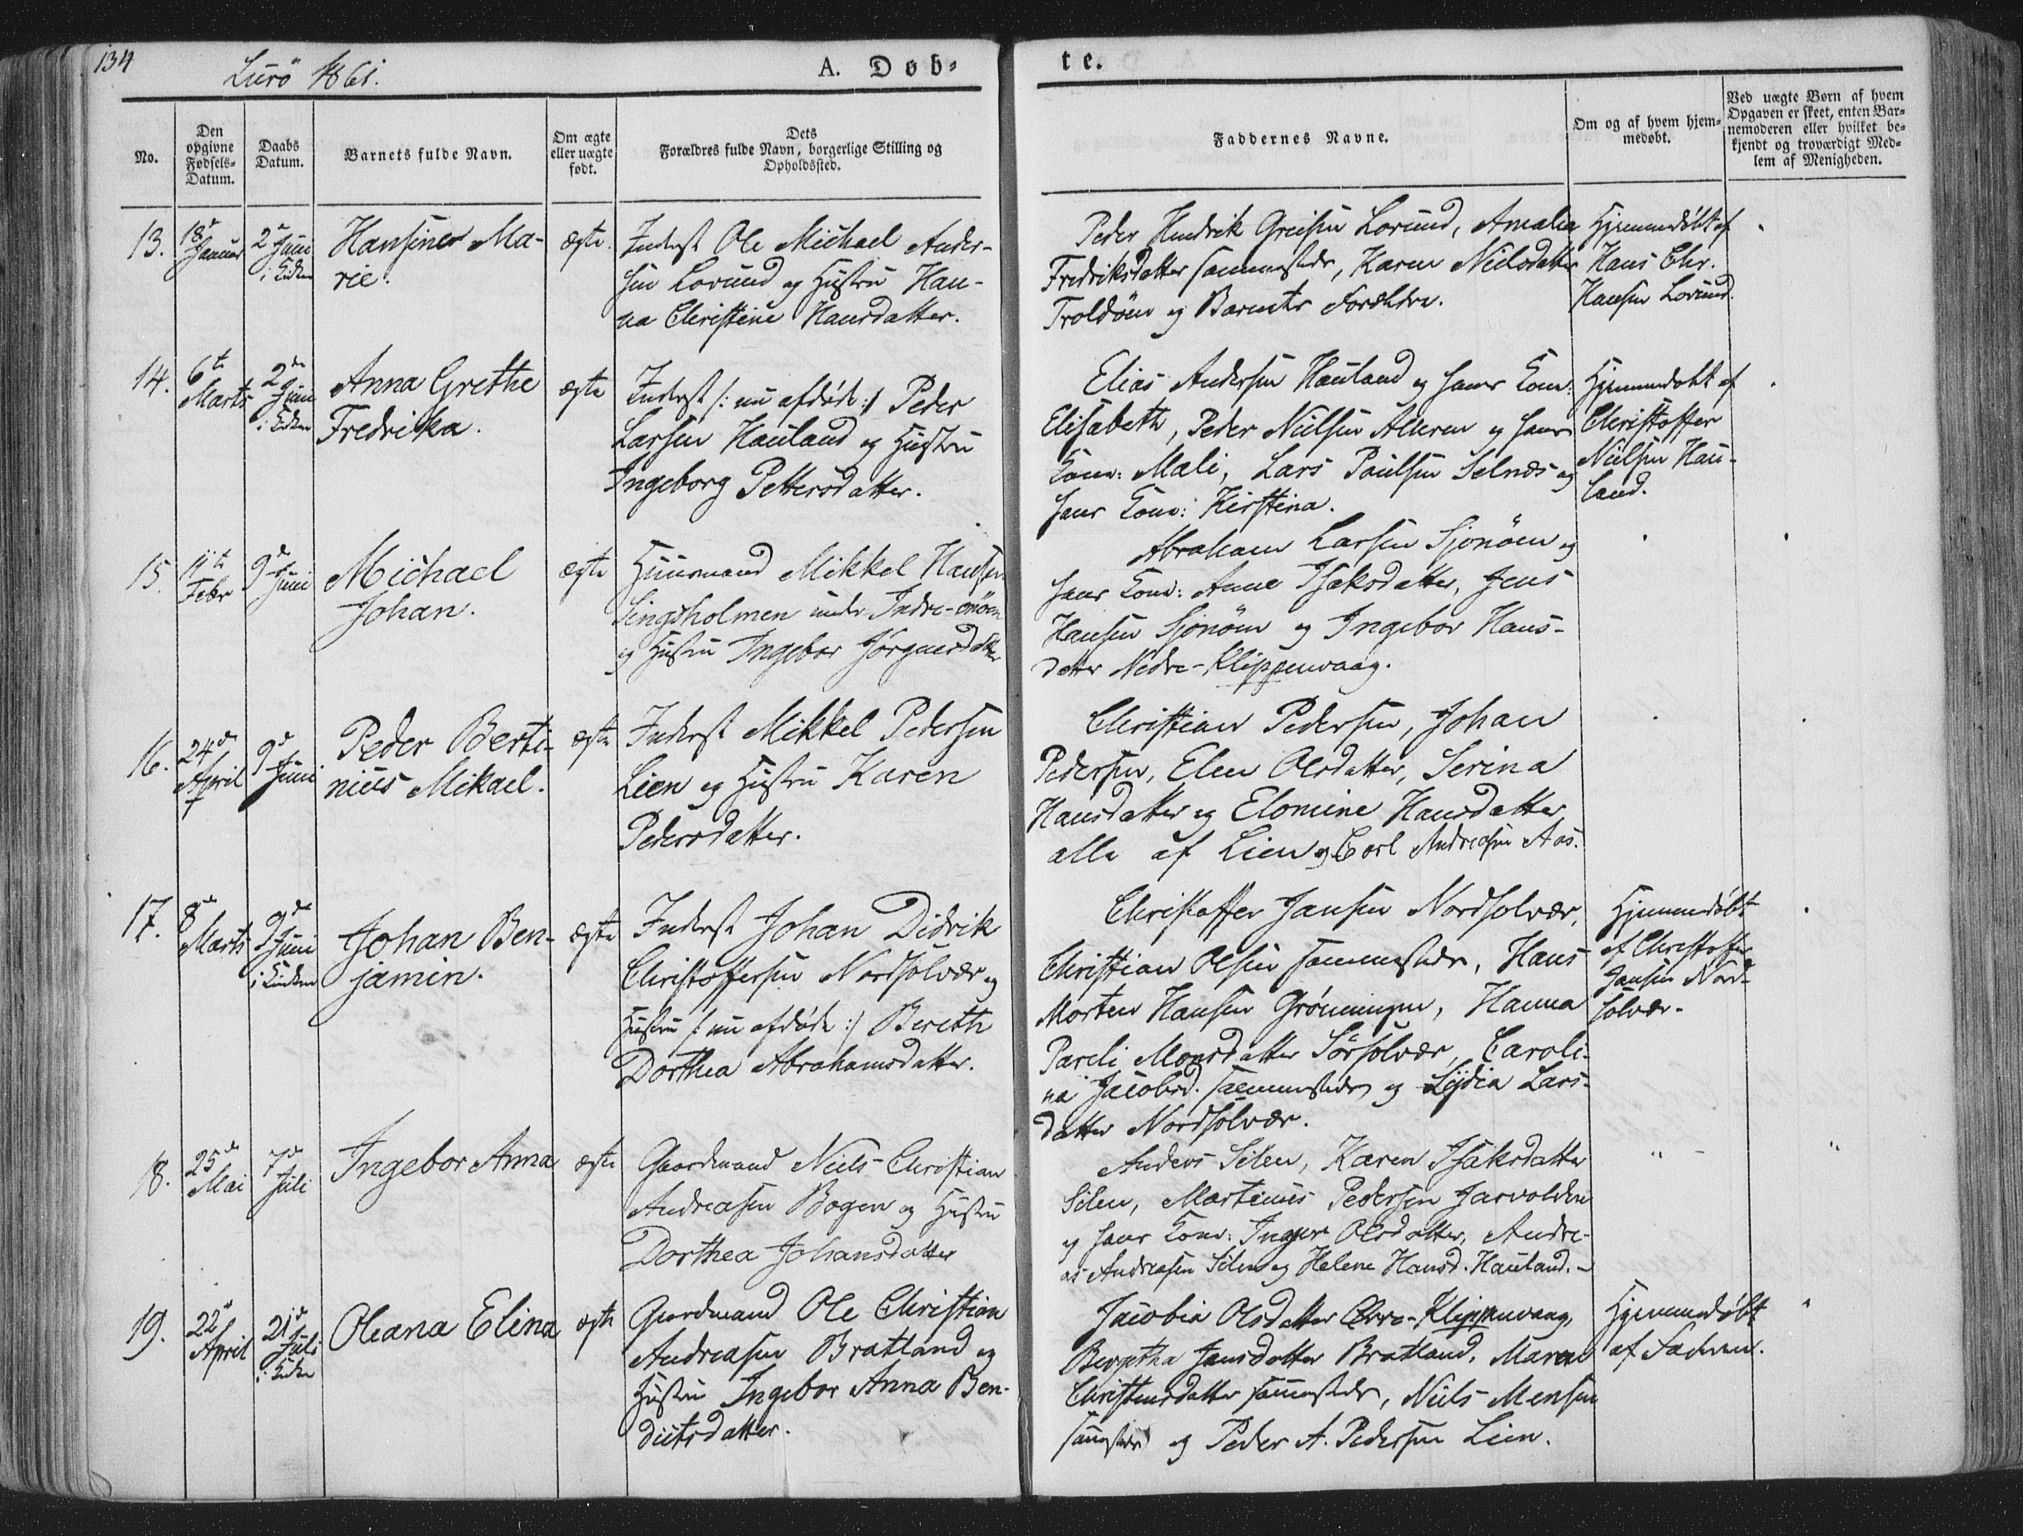 134
Lurø 1861.
A. Døb-
te.
No.
Den
opgivne
Fødsels-
Datum.
Daabs
Datum.
Barnets fulde Navn.
Om ægte
eller uægte
født.
Dets
Forældres fulde Navn, borgerlige Stilling og
Opholdssted.
Faddernes Navne.
Om og af hvem hjem-
medøbt.
Ved uægte Børn af hvem
Opgaven er skeet, enten Bar-
nemoderen eller hvilket be-
kjendt og troværdigt Med-
lem af Menigheden.
13.
18de
Januar
2den
Juni
Hansine Ma-
rie.
ægte.
Inderst Ole Michael Ander-
sen Lovund og Hustru Han-
na Christine Hansdatter.
Peder Hendrik Lovund, Amalia
Fredriksdatter sammesteds, Karen Nielsdatter
Troldöen og Barnets Forældre.
Hjemmedøbt af
Hans Chr.
Hansen Lovund.
14.
6te
Marts
2den
Juni
Anna Grethe
Fredrika.
ægte
Inderst /: nu afdøde :/ Peder
Larsen Hauland og Hustru
Ingeborg Pettersdatter.
Elias Andersen Hauland og hans Kone:
Elisabeth, Peder Nielsen og hans
Kone: Mali, Lars Paulsen Selnæs og
hans Kone: Kirstina.
Hjemmedøbt af
Christoffer
Nielsen Hau-
land.
15.
11te
Febr
9de
Juni
Michael
Johan.
ægte
Huusmand Mikkel Hansen
Lingsholmen under Indre-
og Hustru Ingebor Jörgensdatter
Abraham Larsen Sjonöen og
hans Kone: Anne Isaksdatter, Jens
Hansen Sjonöen og Ingebor Hans-
datter Nedre-Klippenvaag.
16.
24de
April
9de
Juni
Peder Berti-
nius Mikael.
ægte
Inderst Mikkel Pedersen
Lien og Hustru Karen
Pedersdatter.
Christian Pedersen, Johan
Pedersen, Elen Olsdatter, Serina
Hansdatter og Elomine Hansdatter
alle af Lien og Carl Andreasen Aas.
17.
8de
Marts
9de
Juni
Johan Ben-
jamin.
ægte
Inderst Johan Didrik
Christoffersen Nordsolvær og
Hustru /: nu afdøde :/ Bereth
Dorthea Abrahamsdatter.
Christoffer Jansen Nordsolvær,
Christian Olsen sammesteds, Hans
Morten Hansen Grönningen, Hanna
Pareli Monsdatter Sörsolvær, Caroli-
na Jacobsd. sammesteds og Lydia Lars-
datter Nordsolvær.
Hjemmedøbt
af Christoffer
Jansen Nord-
solvær.
18.
25de
Mai
7de
Juli
Ingebor Anna
ægte
Gaardmand Niels Christian
Andreasen Bogen og Hustru
Dorthea Johansdatter
Anders Silen, Karen Isaksdatter
Silen, Martinus Pedersen Jarvolden
og hans Kone: Inger Olsdatter, Andre-
as Andreasen Silen og Helene Hansd. Hauland.
19.
22de
April
21de
Juli
Oleana Elina
ægte
Gaardmand Ole Christian
Andreasen Bratland og
Hustru Ingebor Anna Ben-
diktsdatter.
Jacobia Olsdatter Övre-Klippenvaag,
Bergitha Jansdatter Bratland, Maren
Christensdatter sammesteds, Niels Monsen
sammesteds og Peder A. Pedersen Lien.
Hjemmedøbt
af Faderen.